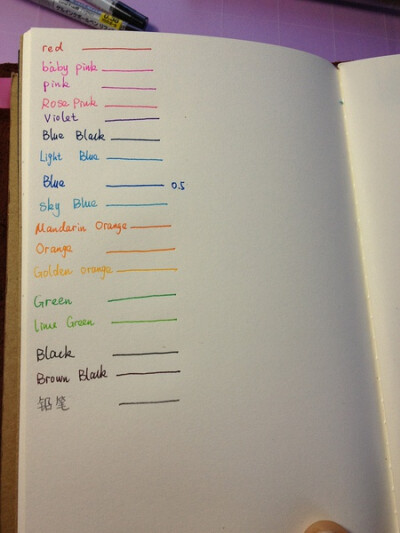 red
baby pink
pink
Rose Pink
Violet
Blue Black
Light Blue
Blue 0.5
sky Blue
Mandarin Orange
Orange
Golden orange
Green
Lime Green
Black
Brown Black
铅笔